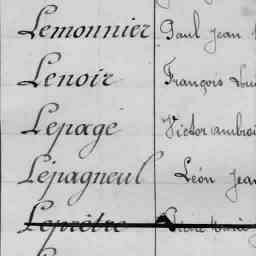 Lemonnier Paul Jean
Lenoir François
Lepage Victor
Lépagneul Léon Jean
Leprêtre Pierre